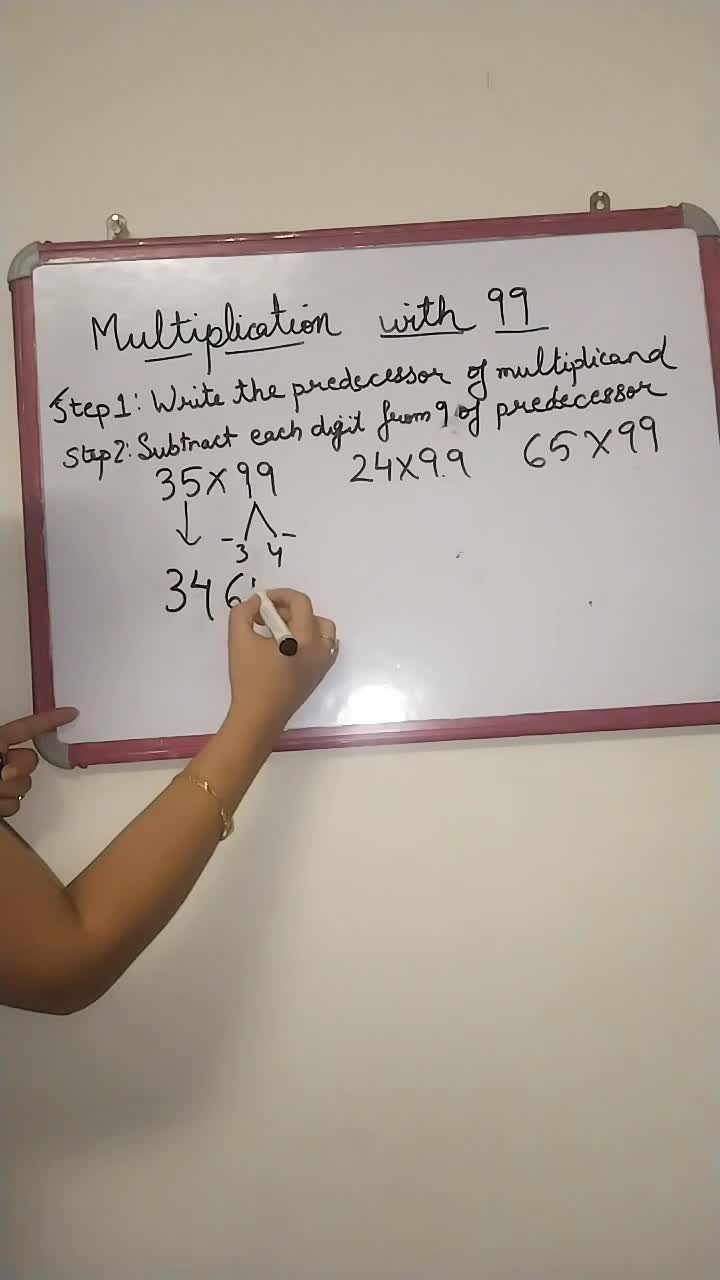 Multiplication with 99
Step 1: Write the predecessor of multiplicand
Step 2: Subtract each digit from 9 of predecessor
35 X 99 24 X 9.9 65 X 99
- 3 4 -
3 4 6